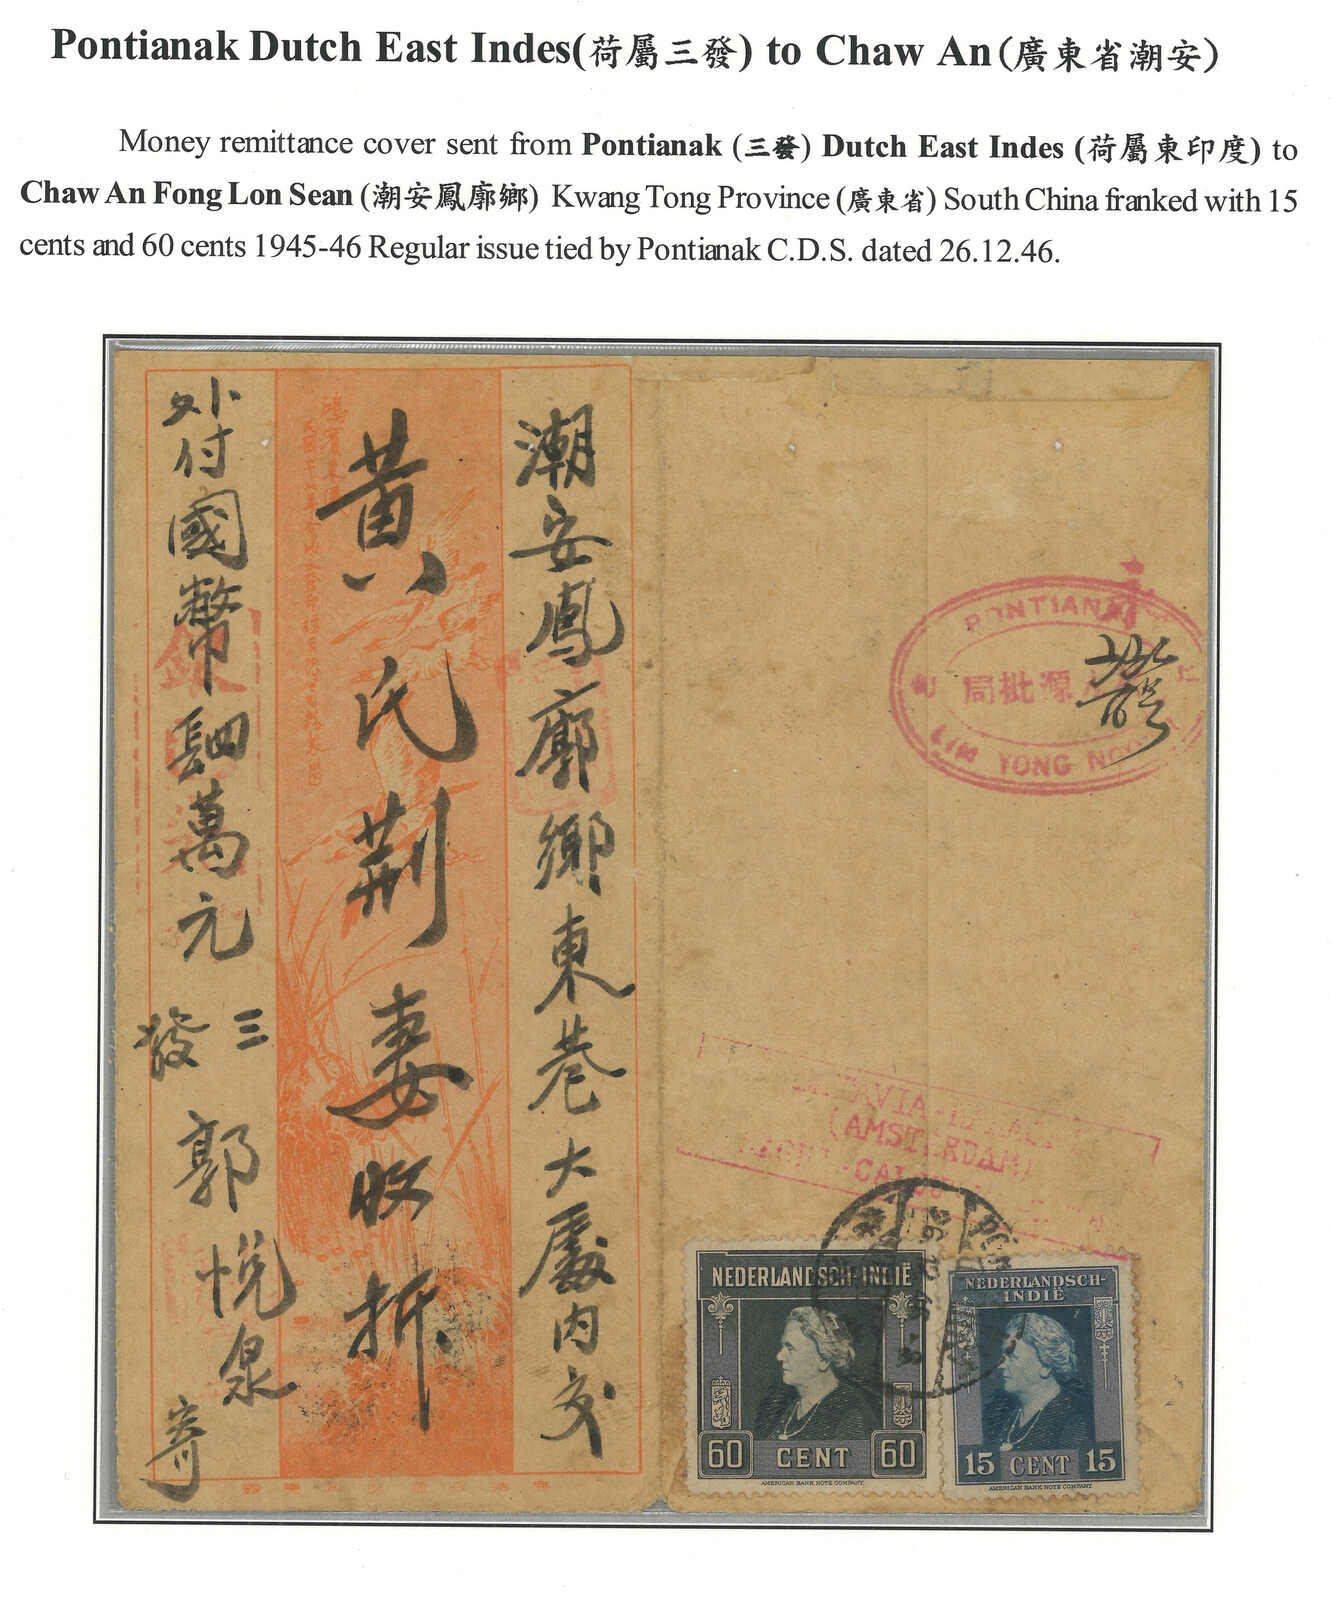 Pontianak Dutch East Indes(荷屬三發) to Chaw An(廣東省潮安)
Money remittance cover sent from Pontianak (三發) Dutch East Indes (荷屬東印度) to
Chaw An Fong Lon Sean (潮安鳳廓鄉) Kwang Tong Province (廣東省) South China franked with 15
cents and 60 cents 1945-46 Regular issue tied by Pontianak C.D.S. dated 26.12.46.
潮安鳳廓鄉東巷大厝內交
黃氏荆妻收拆
外付國幣肆萬元
三發
郭悅泉
寄
PONTIANAK
源批局
LIM YONG
(AMSTERDAM)
NEDERLANDSCH-INDIË
60 CENT 60
AMERICAN BANK NOTE COMPANY.
NEDERLANDSCH-
INDIË
15 CENT 15
AMERICAN BANK NOTE COMPANY.